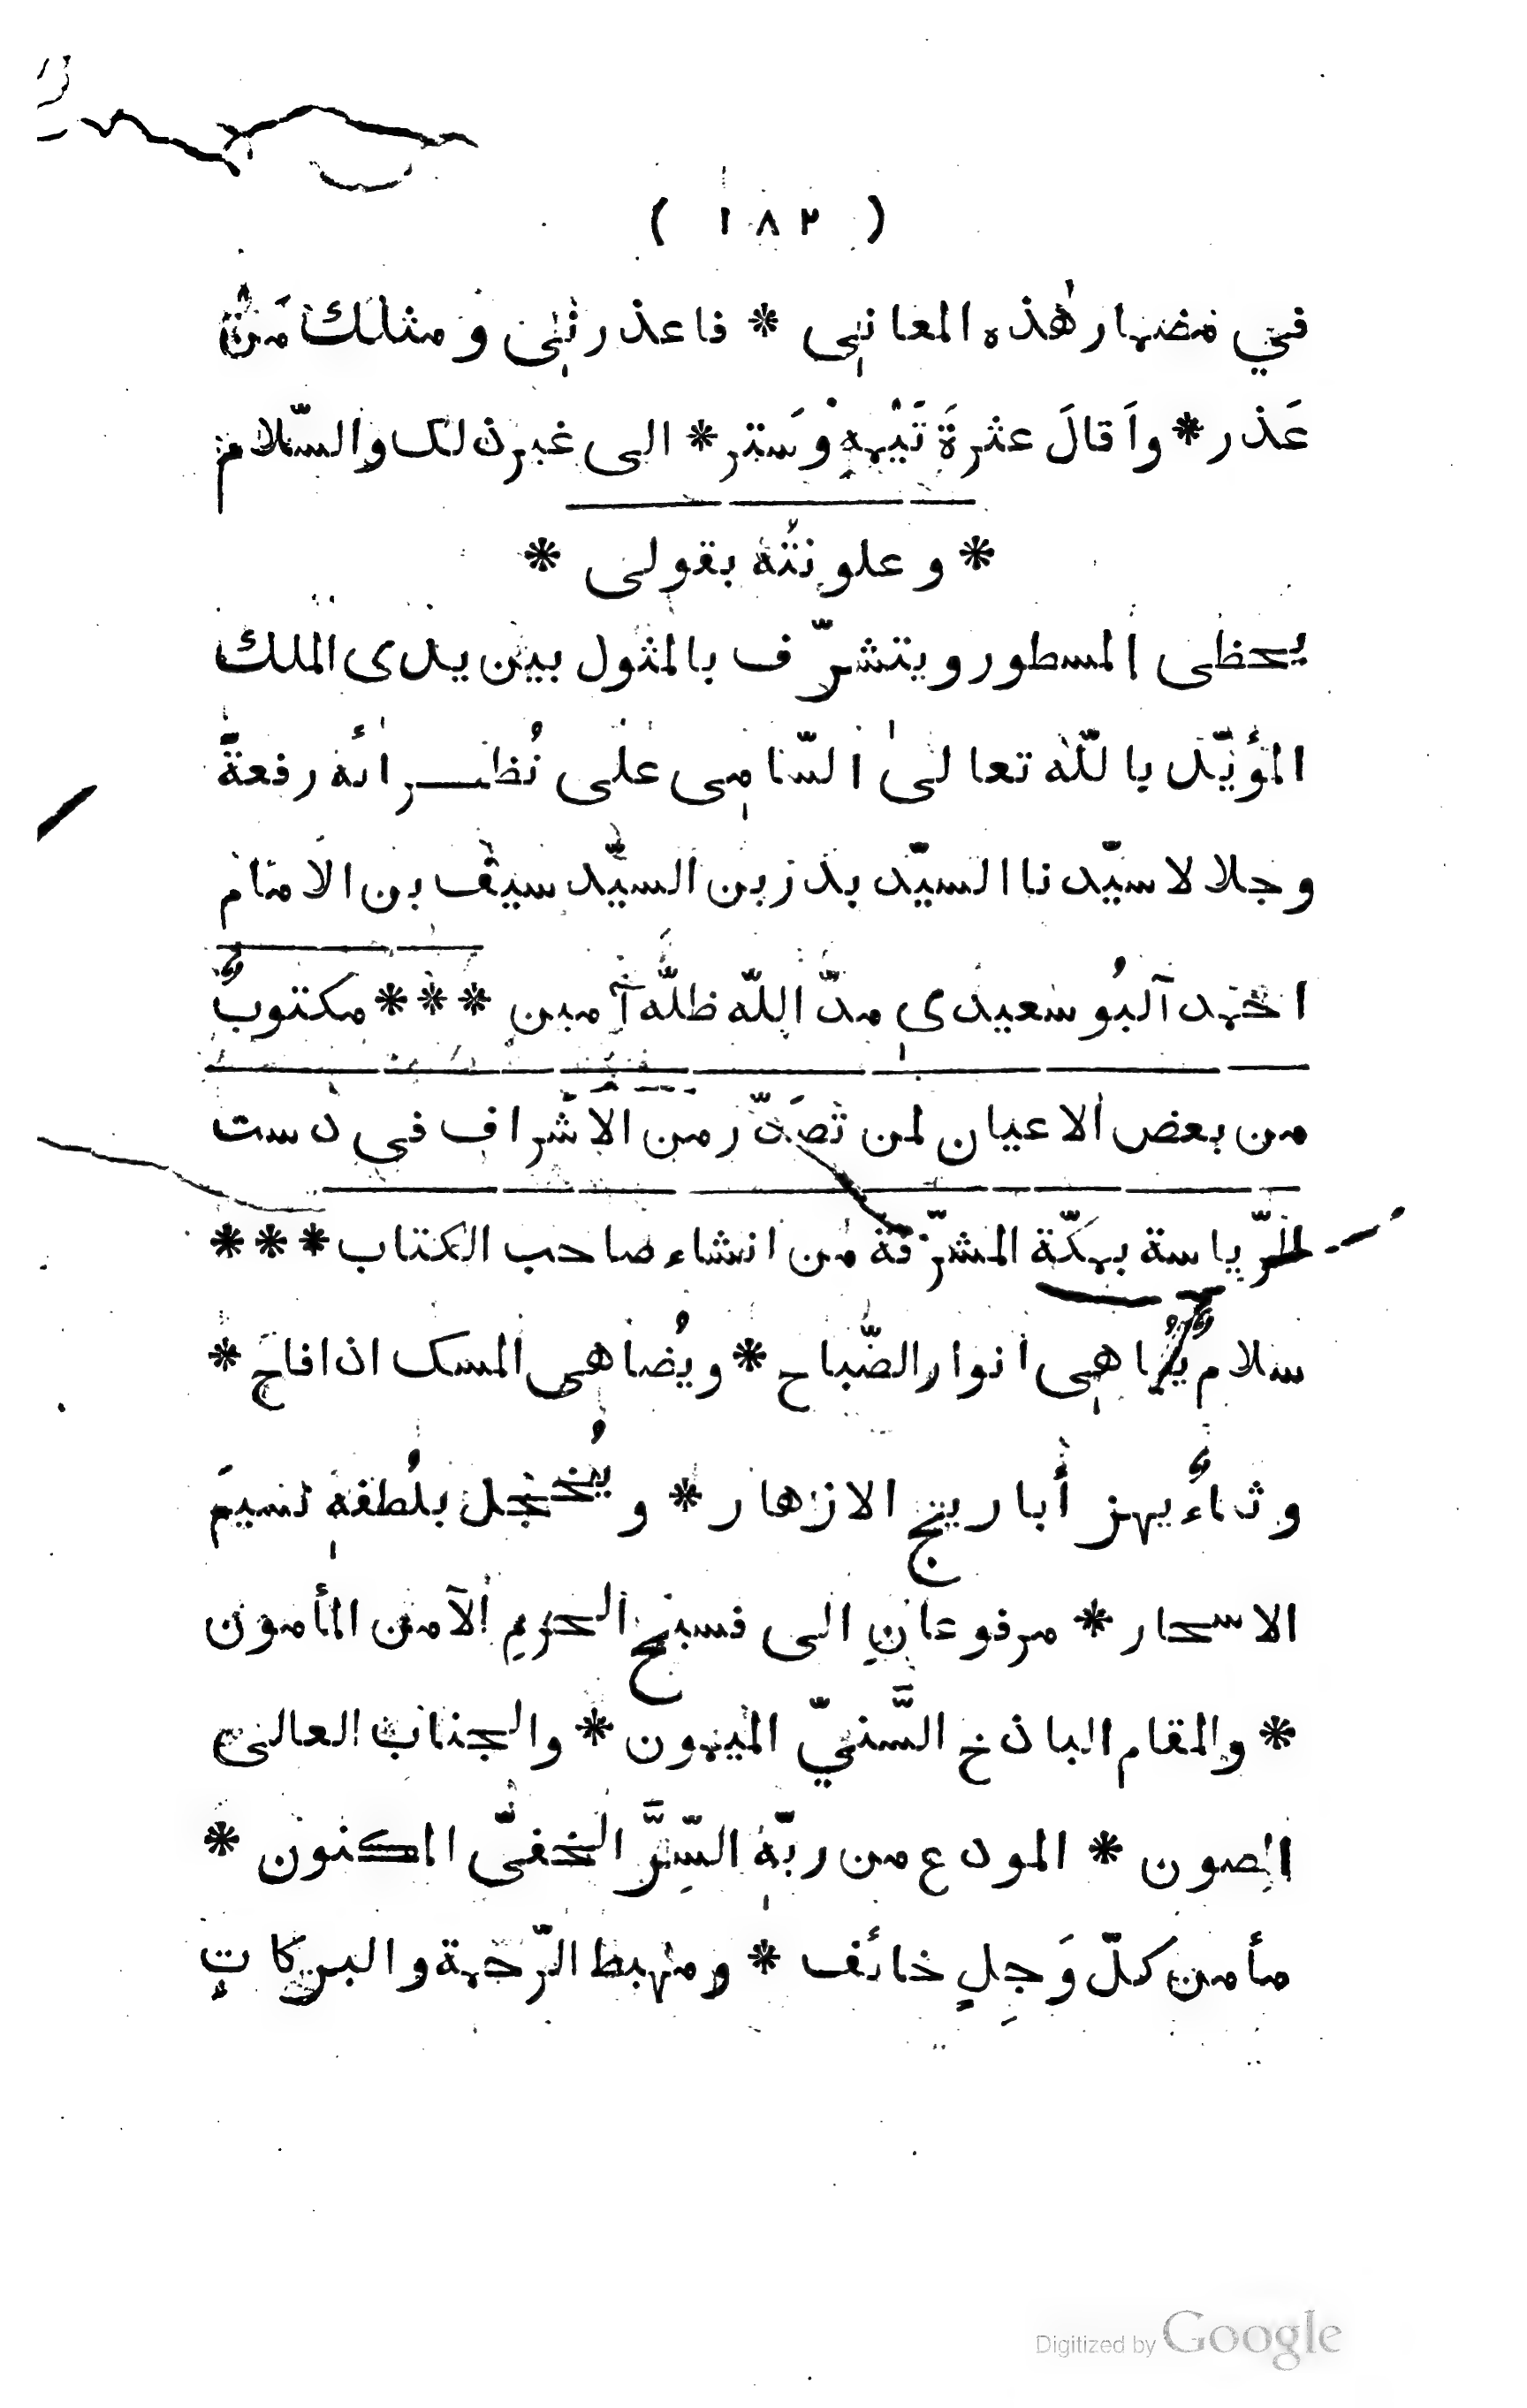 ( ١٨٢ )
في مضمار هٰذه المعانى * فاعذرنى ومثلك مَن
عَذر * واَقالَ عثرةَ تَيْهِهِ وَستر * الى غير ذلك والسّلام
* وعلونتُه بقولى *
يحظى المسطور ويتشرّف بالمثول بين يدى الملك
المؤيّد باللّه تعالىٰ السّامى على نُظــرائه رفعةً
وجلالا سيّدنا السيّد بدر بن السيّد سيف بن الامام
احمد آلبُوسعيدى مدّ اللّه ظلّه آمين *** مكتوبٌ
من بعض الاعيان لمن تصَدّر من الاشراف فى دست
الرّياسة بمكّة المشرّفة من انشاء صاحب الكتاب ***
سلامٌ يُباهى انوار الصّباح * ويُضاهى المسك اذا فاحَ *
وثناءٌ يهز أباريج الازهار * ويُخجل بلُطفهِ نسيمَ
الاسحار * مرفوعانِ الى فسيح الحرمِ الآمن المأمون
* والمقام الباذخ السَّنيّ الميمون * والجناب العالى
المصون * المودع من ربّهِ السِّرَّ الخفىّ المكنون *
مأمن كلّ وَجِلٍ خائف * ومهبط الرّحمة والبركاتِ
Digitized by Google